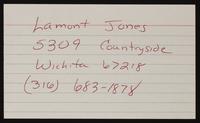 Lamont Jones
5309 Countryside
Wichita 67218
(316) 683-1878